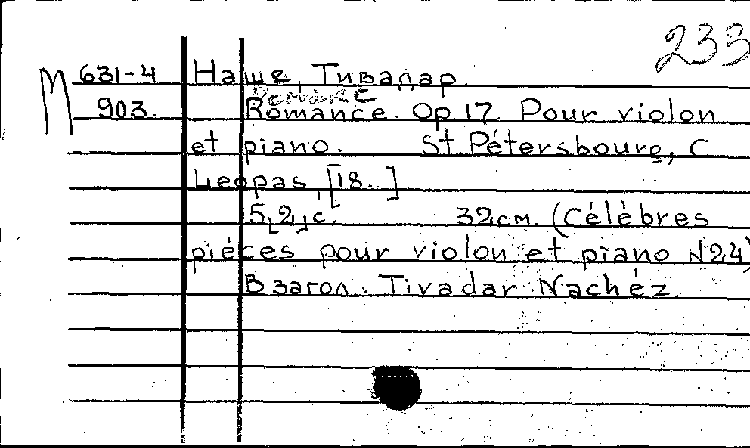 233
М 631-4 Наше, Тивадар
903. Romance
Romance. Op 17. Pour violon
et piano. St Pétersbourg, С
Leopas, [18..]
5,2,с. 32см. (Célèbres
pièces pour violon et piano N24)
В загол. Tivadar Nachèz